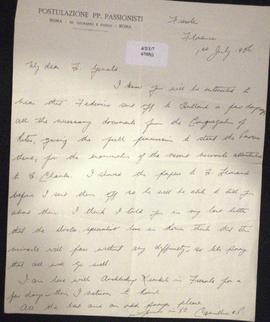 POSTULAZIONE PP. PASSIONISTI
ROMA - SS. GIOVANNI E PAOLO - ROMA
Fiesole
Florence
1st July 19
My dear Fr.
I know you will be interested to
hear that Federico sent off to a few days ago
all the necessary documents from the Congregation of
Rites, giving the full permission to start the Process
there, for the examination of the second miracle attributed
to Fr. Charles. I showed the papers to Fr.
before I sent them off so he will be able to tell you
about them. I think I told you in my last letter
that the doctor specialist here in Rome thinks that the
miracle will pass without any difficulty. so let's pray
that all will go well.
I am here with Archbishop in Fiesole for a
few days - then I return to Rome.
All the best and an odd prayer please
C.P.